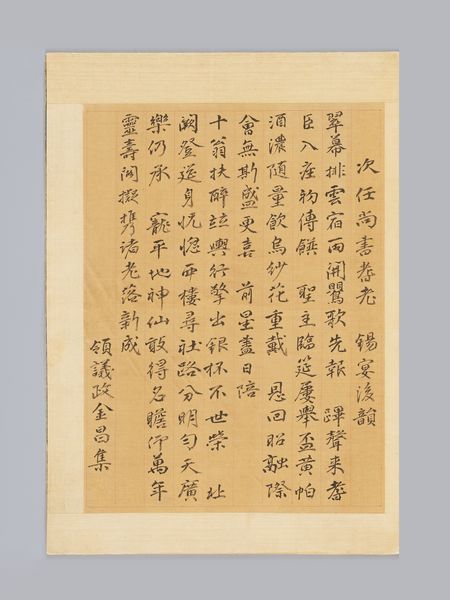 次任尚書耆老 錫宴後韻
翠幕排雲宿雨開鶯歌先報 蹕聲来耆
臣入座初傳饌 聖主臨筵屢舉盃黃帕
酒濃随量飲烏紗花重戴 恩回昭融際
會無斯盛更喜 前星盡日陪
十翁扶醉竝輿行擎出銀杯不世榮 北
闕登筵身怳惚西樓尋社路分明勻天廣
樂仍承 寵平地神仙敢得名瞻仰萬年
靈壽閣擬携諸老落新成
領議政金昌集